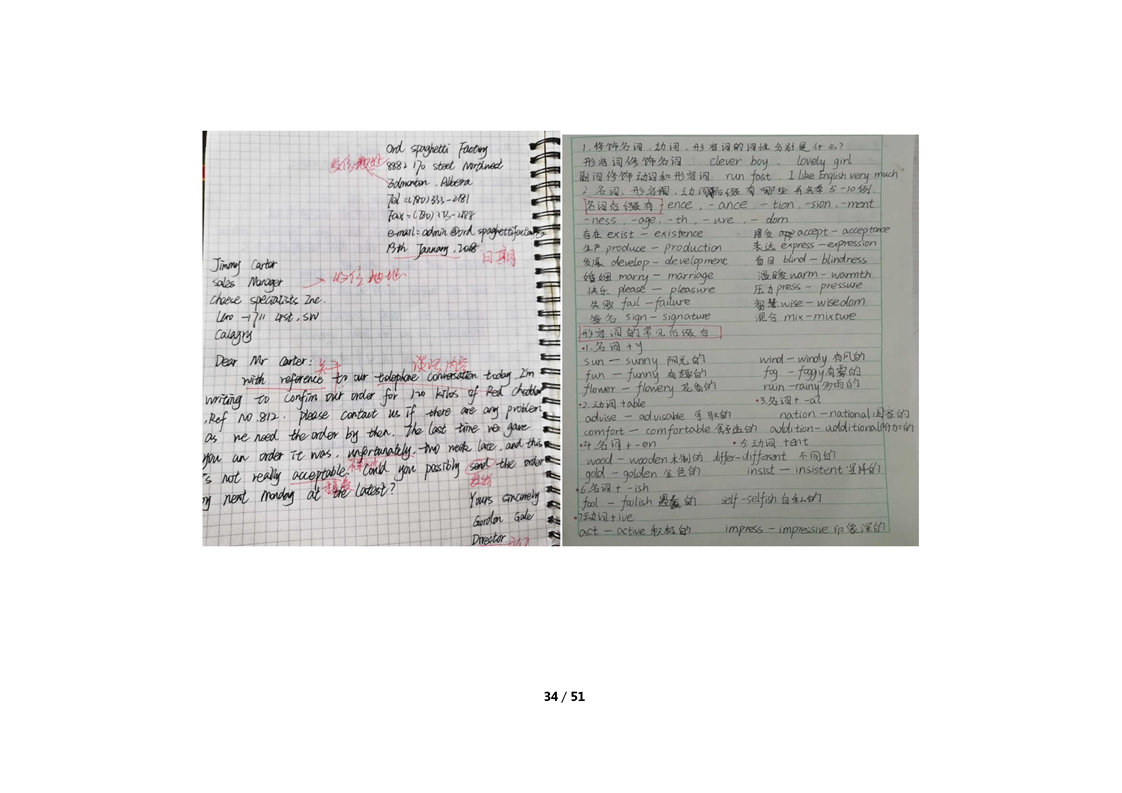 Ord spaghetti Factory
发信地址
8882 170 steet Northwest
Edmonton, Albera
Tel = (780) 333-2181
Fax = (780) 333-2188
e-mail = admin @ord
13th January, 2018 日期
Jimmy Carter
Sales Manager 收信地址
cheese specialists Inc.
Calagry
Dear Mr Carter: 关于 谈话内容
with reference to our telephone conversation today, I'm
writing to confirm our order for 120 kilos of Red cheddar
, Ref NO.812. please contact us if there are any problem
as we need the order by then. The last time we gave
you an order it was, unfortunately, two week late, and this
s not really acceptable. Could you possibly send the order
y next Monday at the latest?
Yours sincerely
Gordon Gale
Director
1. 修饰名词、动词、形容词的词性分别是什么?
形容词修饰名词: clever boy . lovely girl
副词修饰动词和形容词. run fast . I like English very much
2. 名词, 形容词, 动词后缀有哪些 5-10例.
名词后缀有 ence . -ance . -tion . -sion . -ment
-ness . -age . -th . -ure . -dom
存在 exist - existence 接受 accept - acceptance
生产 produce - production 表达 express - expression
发展 develop - development 盲目 blind - blindness
婚姻 marry - marriage 温暖 warm - warmth
快乐 please - pleasure 压力 press - pressure
失败 fail - failure 智慧 wise - wisedom
签名 sign - signature 混合 mix - mixtwe
形容词的常见后缀有
·1. 名词 + y
sun — sunny 阳光的 wind - windy 有风的
fun — funny 有趣的 fog - foggy 有雾的
flower - flowery 花香的 rain - rainy 多雨的
·2. 动词 + able ·3. 名词 + -al
advise — advisable 可取的 nation - national 国家的
comfort — comfortable 舒适的 addition - additional 附加的
·4. 名词 + -en ·5 动词 + ent
wood - wooden 木制的 differ-different 不同的
gold - golden 金色的 insist — insistent 坚持的
·6. 名词 + -ish
fool — foolish 愚蠢的 self-selfish 自私的
·7. 动词 + ive
act — active 积极的 impress - impressive 印象深的
34 / 51